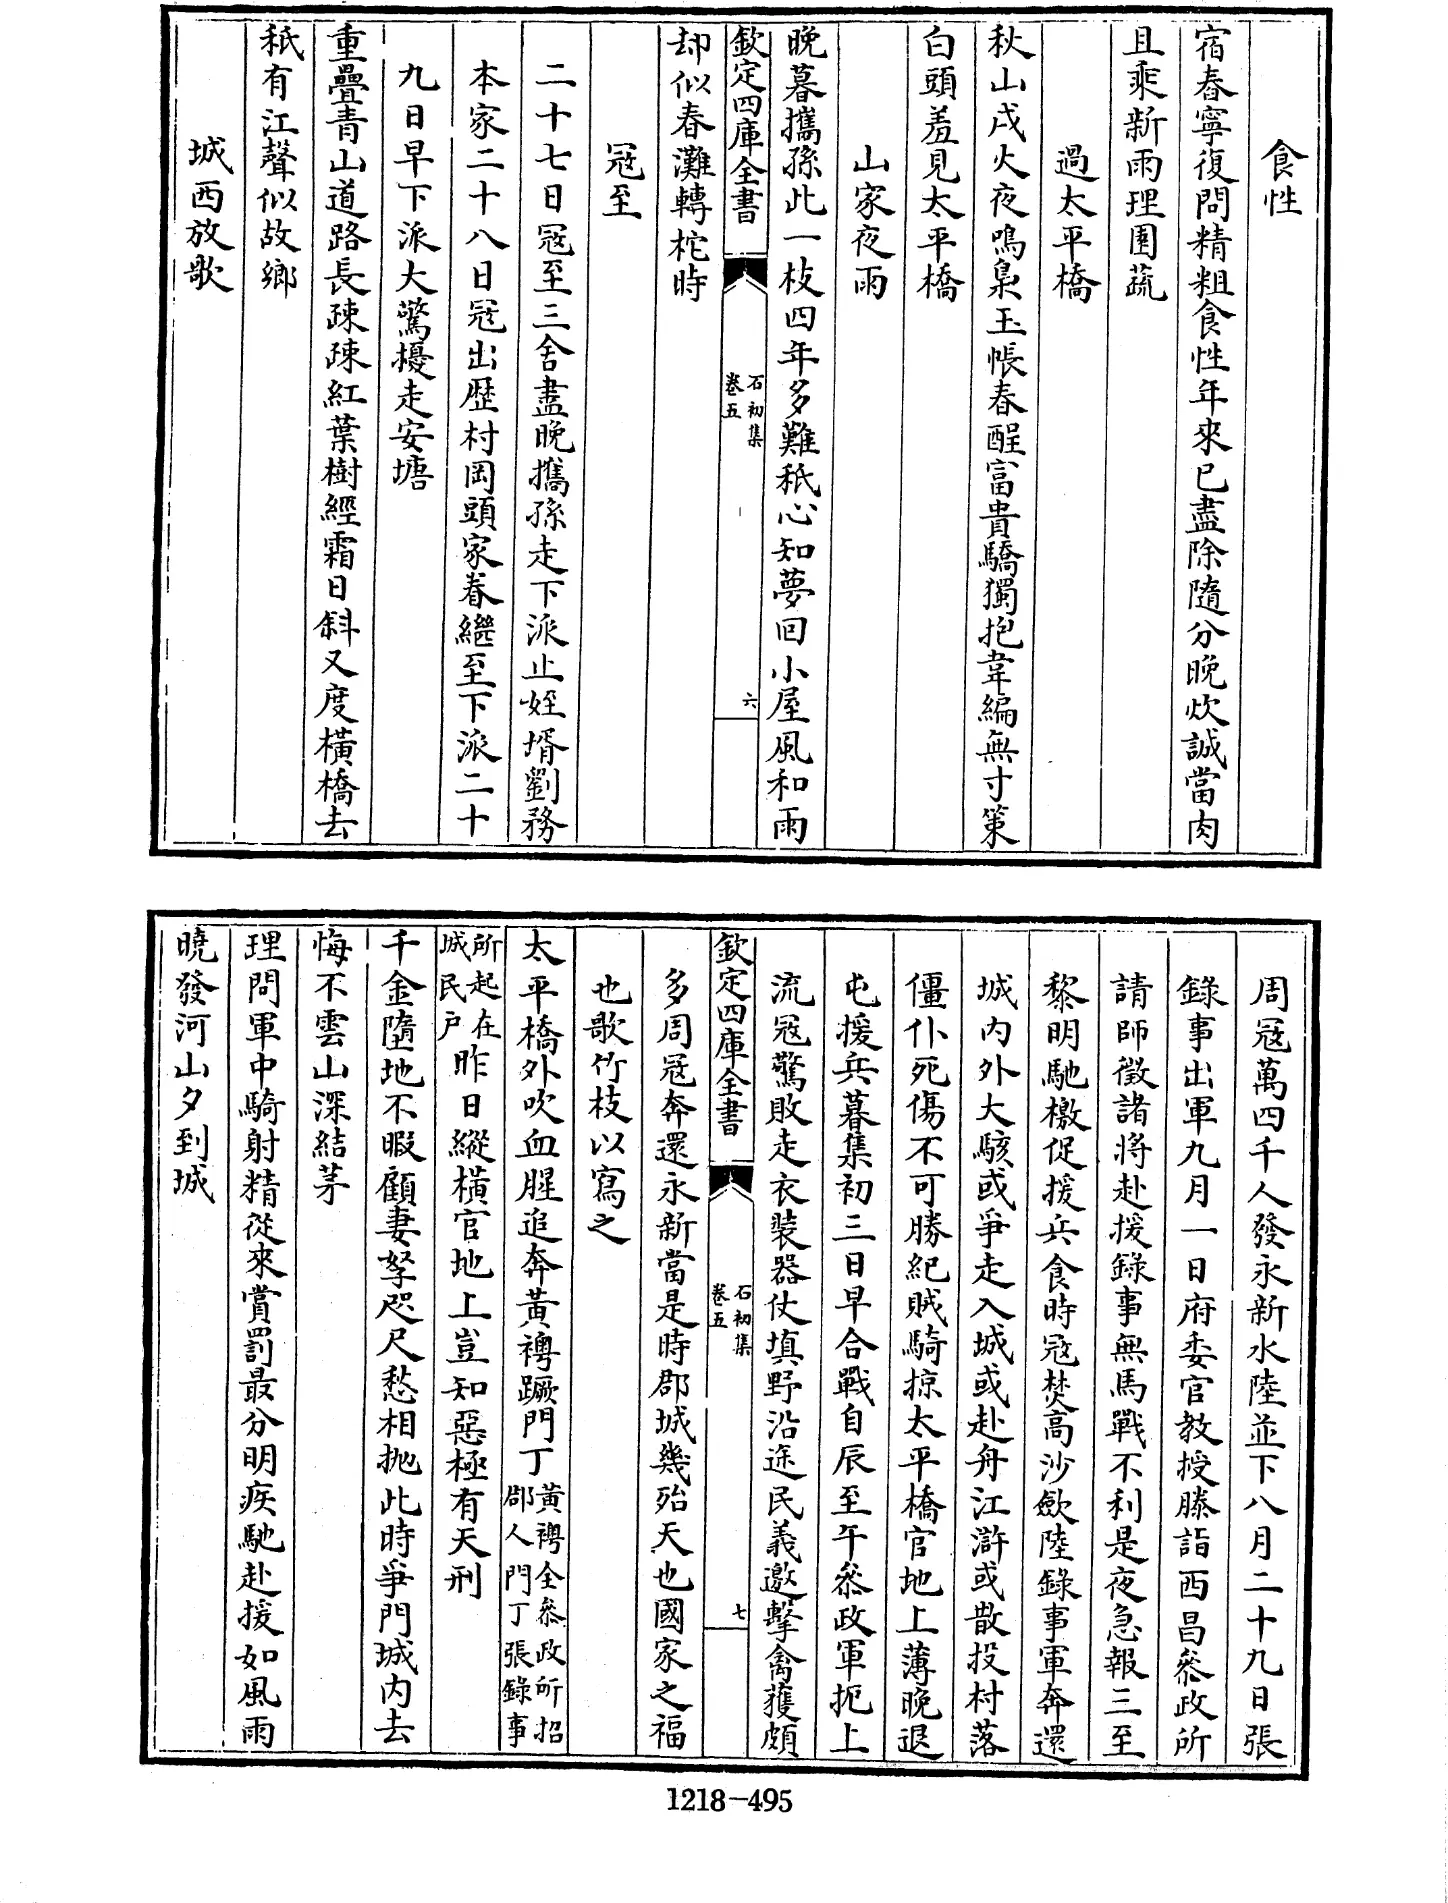 食性
宿舂寧復問精粗食性年來已盡除隨分晚炊誠當肉
且乘新雨理園蔬
過太平橋
秋山戍火夜鳴梟玉帳春酲富貴驕獨抱韋編無寸策
白頭羞見太平橋
山家夜雨
晚暮攜孫此一枝四年多難秪心知夢回小屋風和雨
欽定四庫全書
石初集
卷五
六
却似春灘轉柁時
冦至
二十七日冦至三舍盡晚攜孫走下派止姪壻劉務
本家二十八日冦出歴村岡頭家眷繼至下派二十
九日早下派大驚擾走安塘
重疊青山道路長疎疎紅葉樹經霜日斜又度橫橋去
秪有江聲似故鄉
城西放歌
周冦萬四千人發永新水陸並下八月二十九日張
錄事出軍九月一日府委官教授滕詣西昌叅政所
請師徵諸將赴援錄事無馬戰不利是夜急報三至
黎明馳檄促援兵食時冦焚高沙歛陸錄事軍奔還
城内外大駭或爭走入城或赴舟江滸或散投村落
僵仆死傷不可勝紀賊騎掠太平橋官地上薄晚退
屯援兵暮集初三日早合戰自辰至午叅政軍扼上
流冦驚敗走衣裝器仗填野沿途民義邀擊禽獲頗
欽定四庫全書
石初集
卷五
七
多周冦奔還永新當是時郡城幾殆天也國家之福
也歌竹枝以寫之
太平橋外吹血腥追奔黃䙡蹶門丁黃䙡全叅政所招郡人門丁張錄事
所起在城民戶昨日縱橫官地上豈知惡極有天刑
千金墮地不暇顧妻孥咫尺愁相抛此時爭門城内去
悔不雲山深結茅
理問軍中騎射精從來賞罰最分明疾馳赴援如風雨
曉發河山夕到城
1218-495